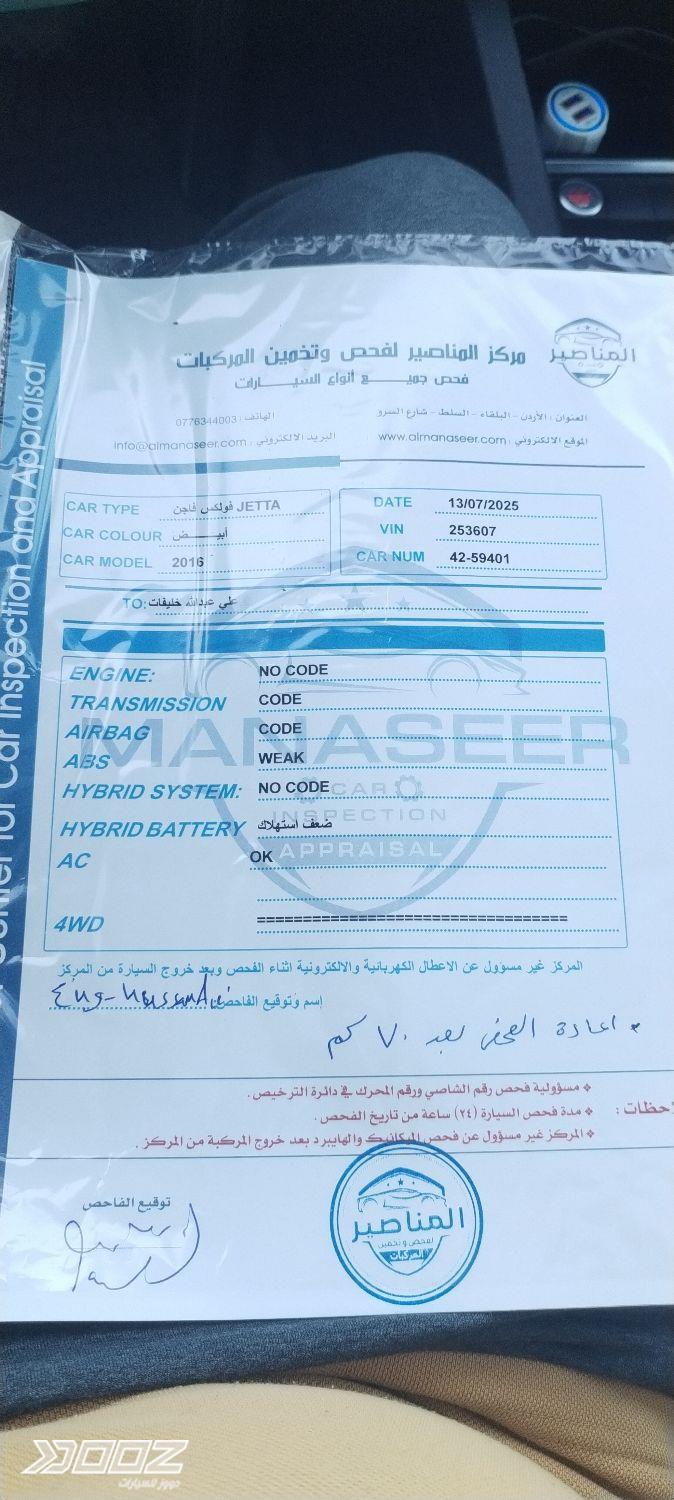 المناصير
مركز المناصير لفحص وتخمين المركبات
فحص جميـــــع أنواع الســـيـــارات
العنوان : الأردن - البلقاء - السلط - شارع السرو
الهاتف : 0776344003
الموقع الالكتروني : www.almanaseer.com
البريد الالكتروني : info@almanaseer.com
Center for Car Inspection and Appraisal
CAR TYPE فولكس فاجن JETTA
CAR COLOUR أبيـــــض
CAR MODEL 2016
DATE 13/07/2025
VIN 253607
CAR NUM 42-59401
TO: علي عبدالله خليفات
ENGINE: NO CODE
TRANSMISSION CODE
AIRBAG CODE
ABS WEAK
HYBRID SYSTEM: NO CODE
HYBRID BATTERY ضعف استهلاك
AC OK
4WD ==================================
MANASEER
CAR
INSPECTION
APPRAISAL
المركز غير مسؤول عن الاعطال الكهربائية والالكترونية اثناء الفحص وبعد خروج السيارة من المركز
إسم وتوقيع الفاحص:
* اعادة الفحص بعد ٧٠ كم
❖ مسؤولية فحص رقم الشاصي ورقم المحرك في دائرة الترخيص .
❖ مدة فحص السيارة (٢٤) ساعة من تاريخ الفحص .
❖ المركز غير مسؤول عن فحص الميكانيك والهايبرد بعد خروج المركبة من المركز .
توقيع الفاحص
المناصير
لفحص وتخمين
المركبات
DOOZ
دووز للسيارات